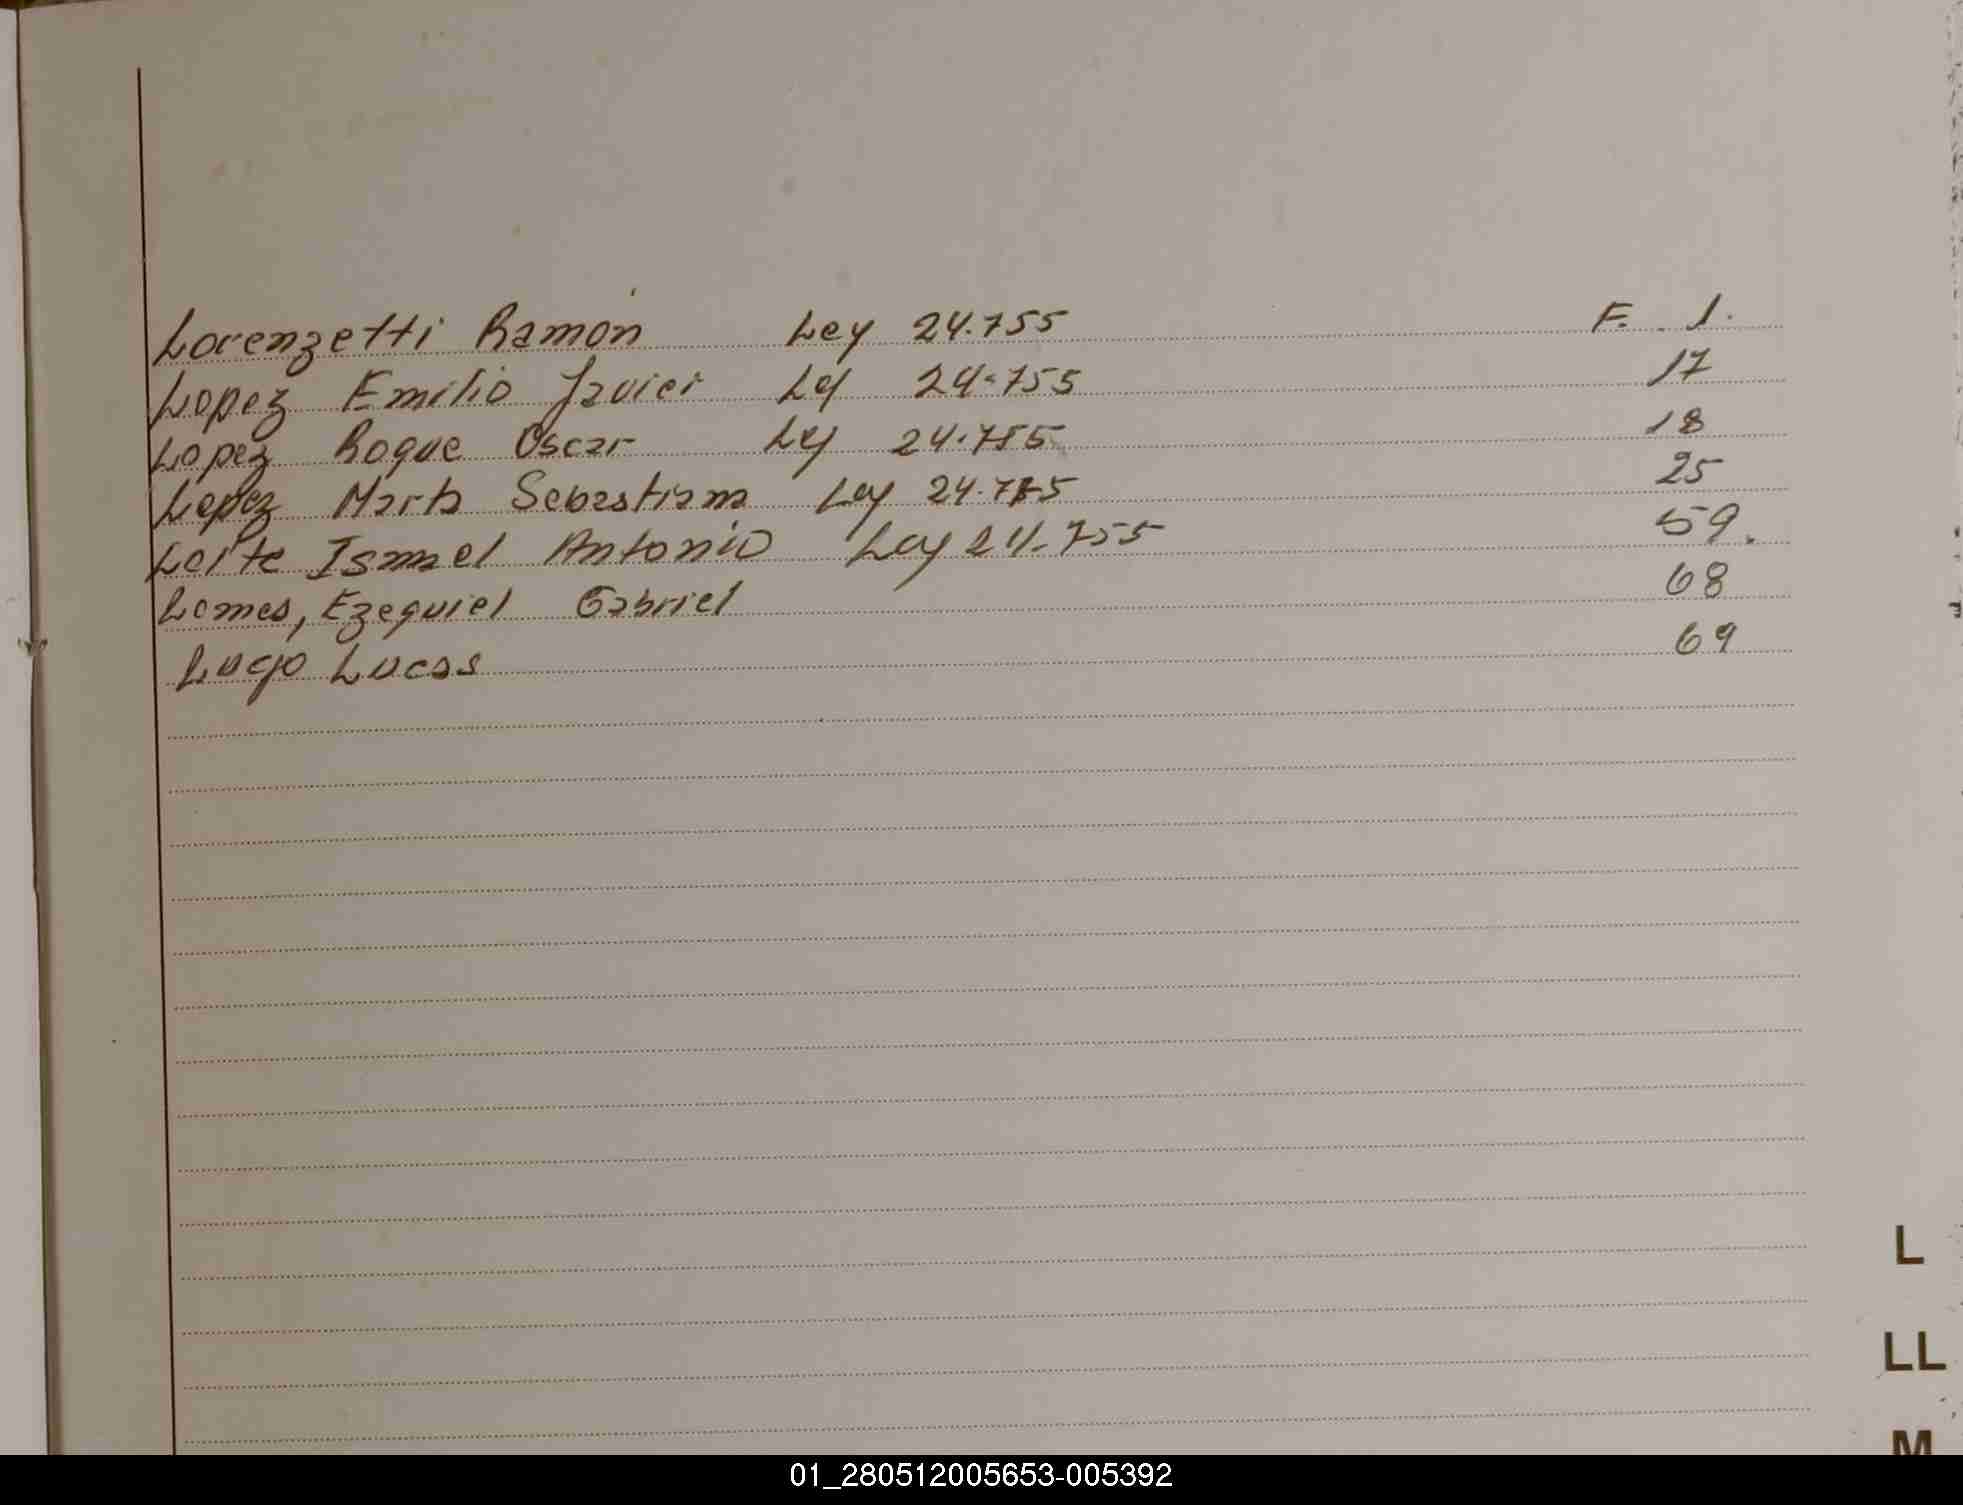 Lorenzetti Ramón Ley 24.755 F. 1.
Lopez Emilio Javier Ley 24.755 17
Lopez Roque Oscar Ley 24.755 18
Lopez Marta Sebastiana Ley 24.755 25
Leite Ismael Antonio Ley 24.755 59.
Lemes, Ezequiel Gabriel 68
Lugo Lucas 69
L
LL
M
01_280512005653-005392